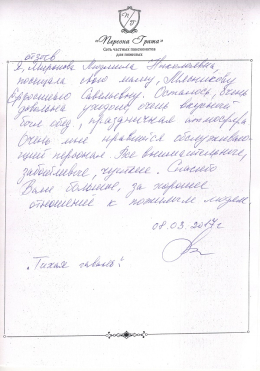 П/Г
«Персона Грата»
Сеть частных пансионатов
для пожилых
отзов
Я, Миронова Людмила Николаевна,
посещала свою маму, Мясникову
Савельевну. Осталась, очень
довольна уходом, очень вкусный
был обед, праздничная атмосфера
Очень мне нравится обслуживаю-
щий персонал. Все внимательные,
заботливые, чуткие. Спасибо
Вам большое, за хорошее
отношение к пожилым людям.
08.03.2017г
„Тихая гавань"